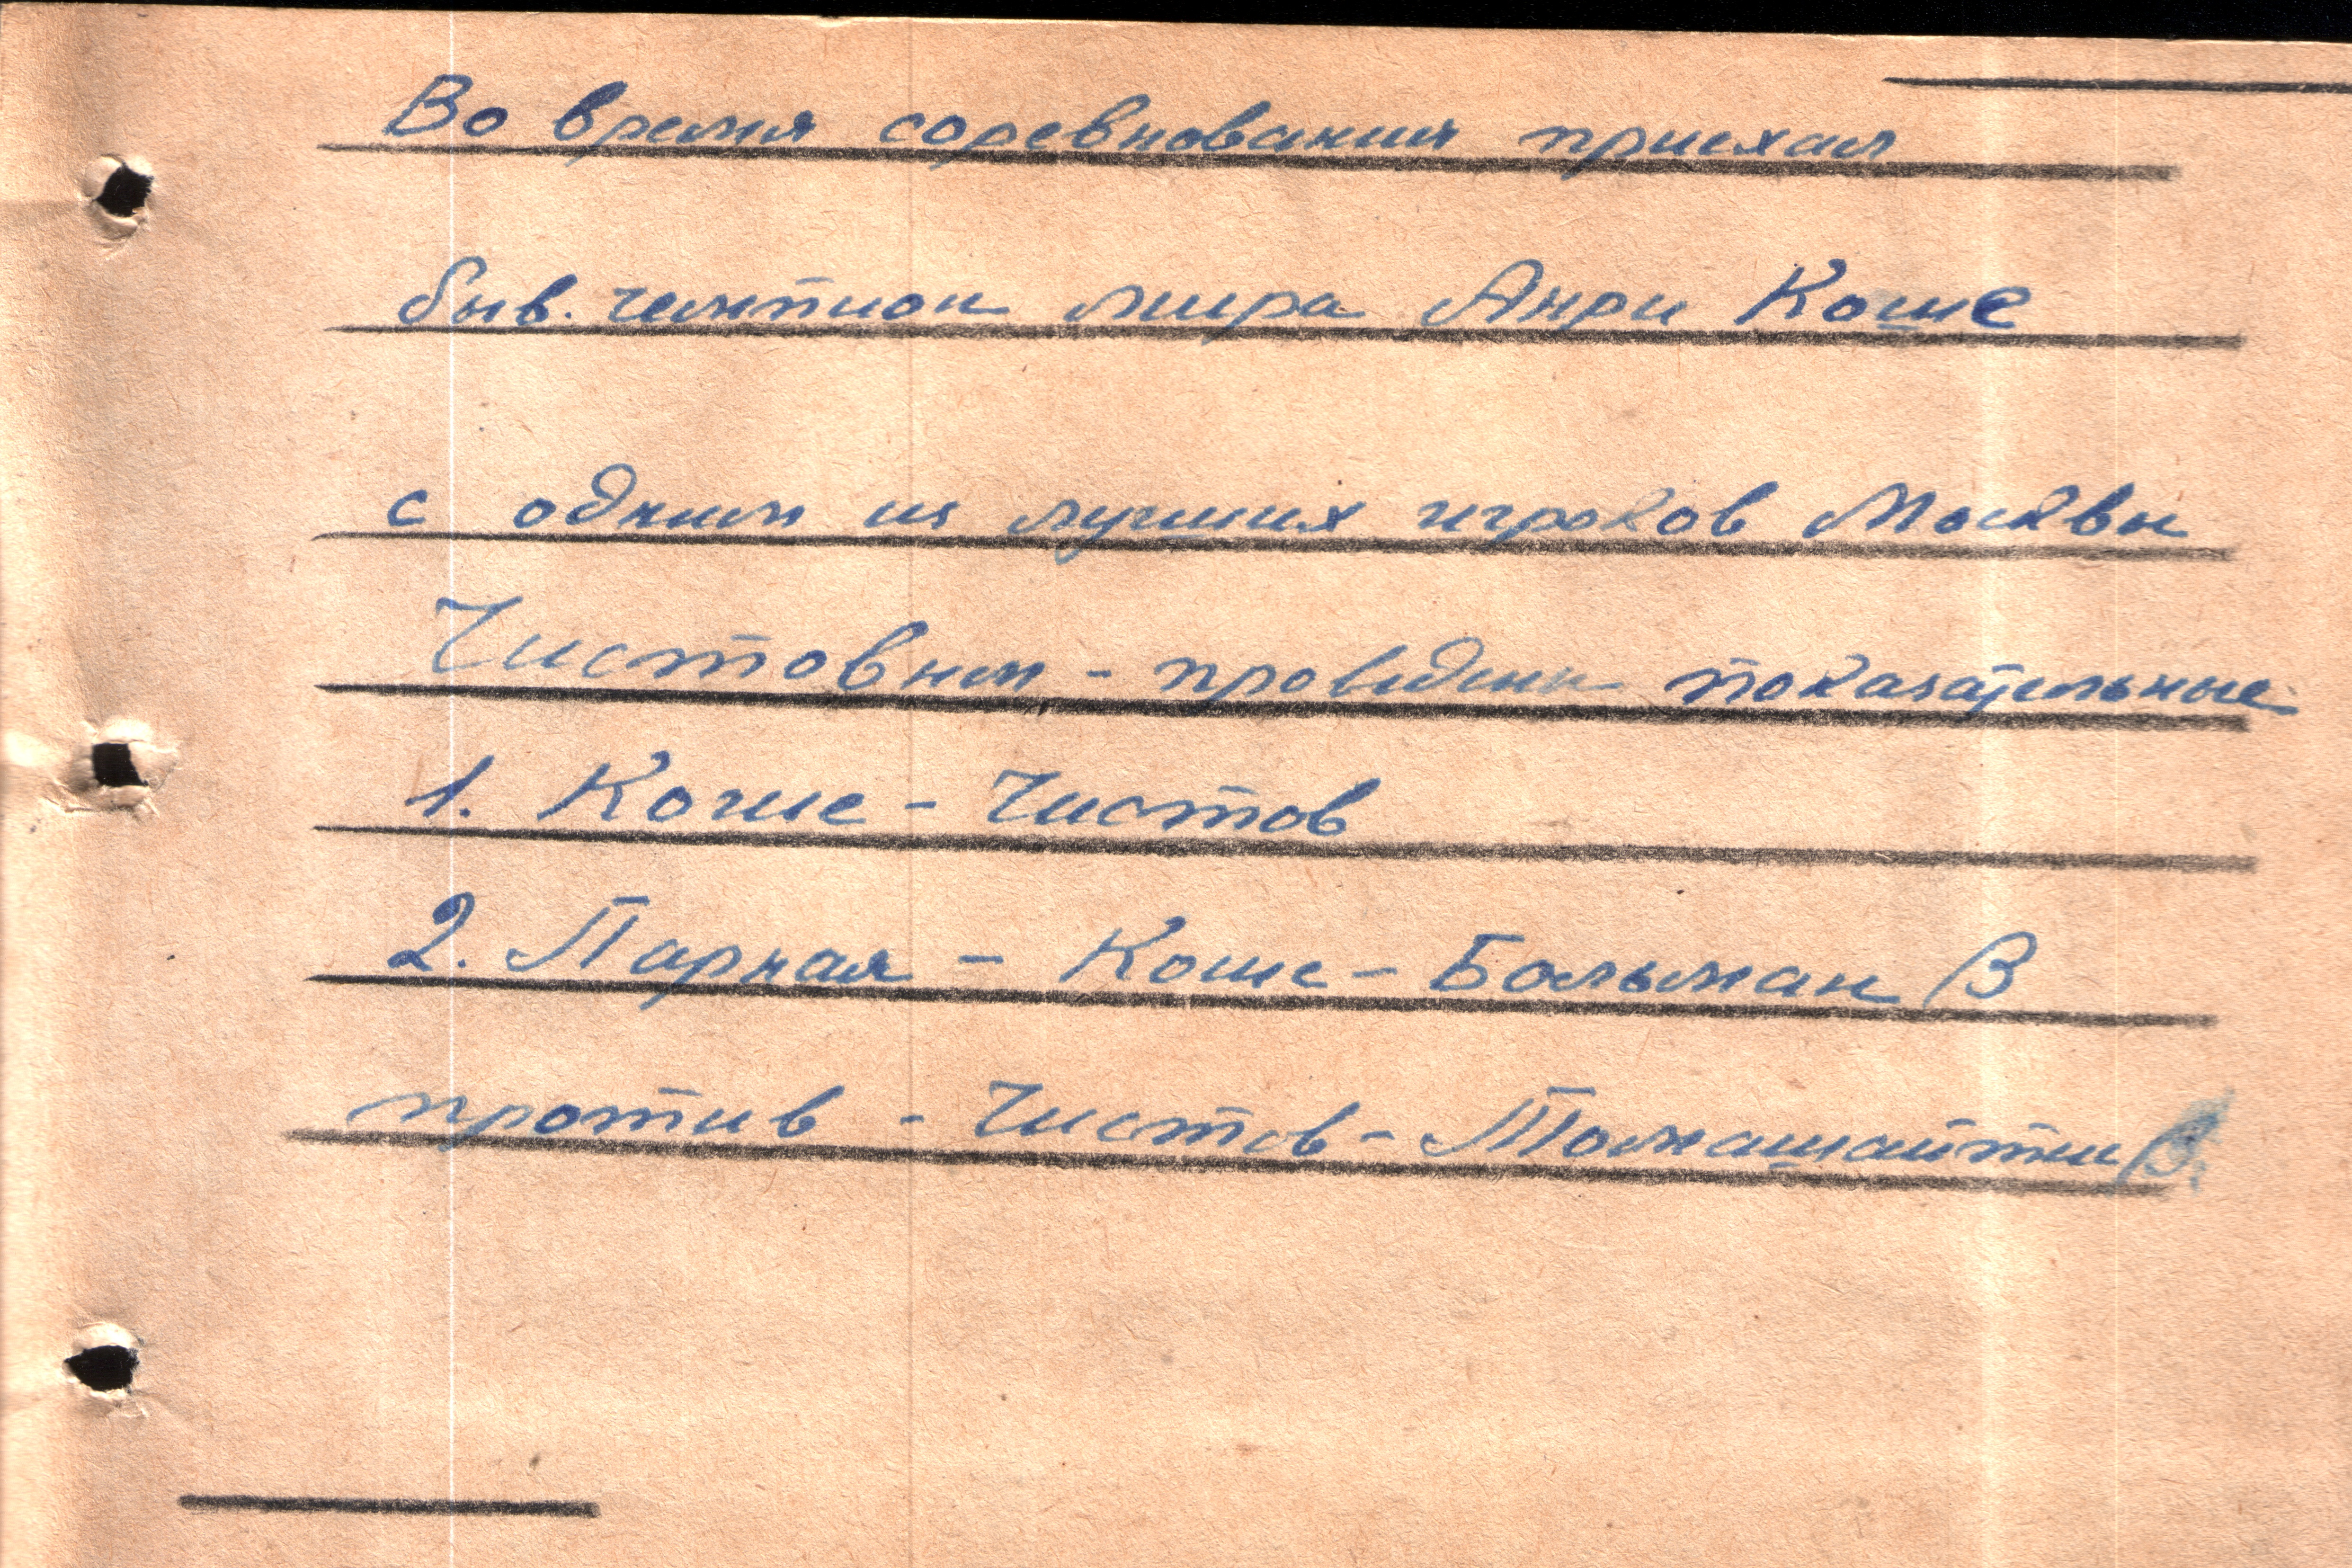 Во время соревнования приехал
быв. чемпион мира Анри Коше
с одним из лучших игроков Москвы
Чистовым - проведены показательные
1. Коше - Чистов
2. Парная - Коше - Больман В
против - Чистов - Момашайтти В.